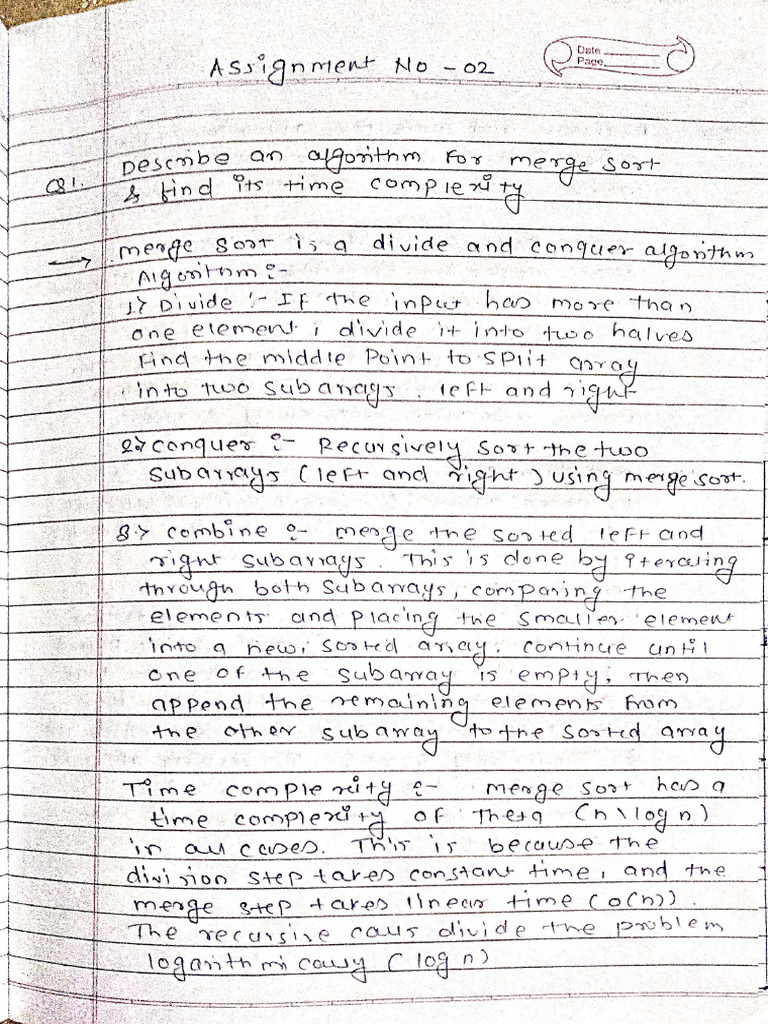 Assignment No - 02
Date
Page
Q1. Describe an algorithm for merge sort
& find its time complexity
→ merge sort is a divide and conquer algorithm
Algorithm :-
1.> Divide :- If the input has more than
one element, divide it into two halves
Find the middle Point to split array
into two subarrays. left and right
2.> conquer :- Recursively sort the two
subarrays (left and right) using merge sort.
3.> combine :- merge the sorted left and
right subarrays. This is done by iterating
through both subarrays, comparing the
elements and placing the smaller element
into a new, sorted array. continue until
one of the subarray is empty, Then
append the remaining elements from
the other subarray to the sorted array
Time complexity :- merge sort has a
time complexity of Theta (n \ log n)
in all cases. This is because the
division step takes constant time, and the
merge step takes linear time (O(n)).
The recursive calls divide the problem
logarithmically (log n)